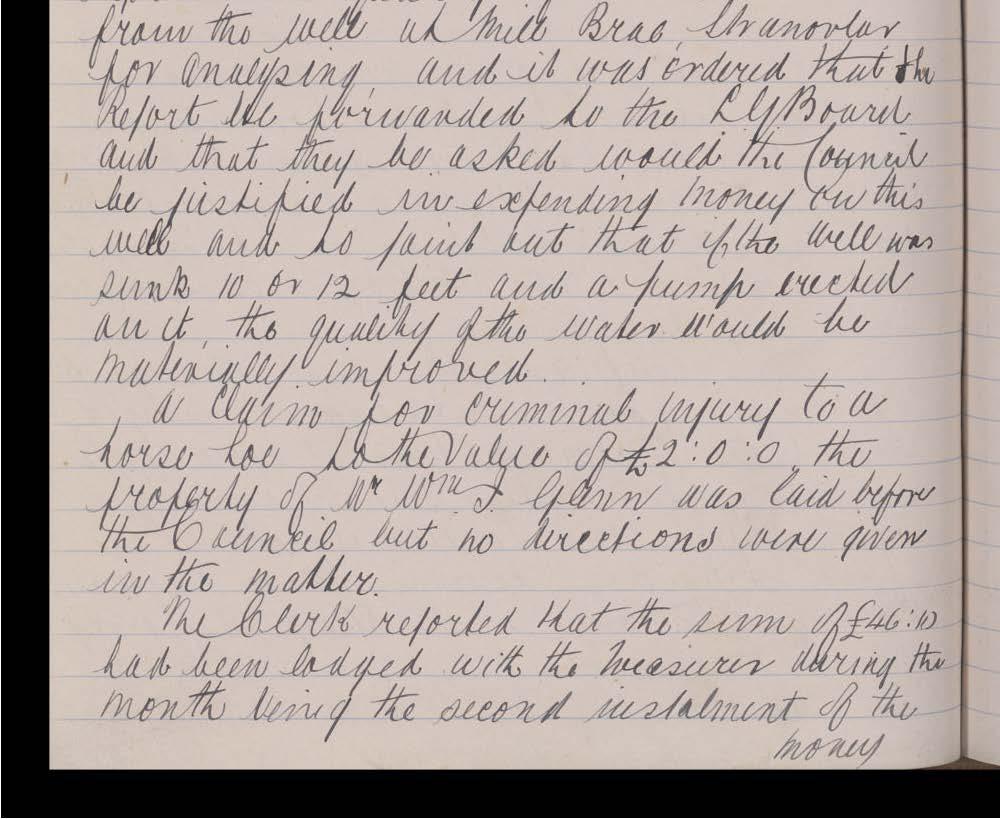 from the well at Mill Brae, Stranorlar
for analysing, and it was ordered that the
Report be forwarded to the LGBoard
and that they be asked would the Council
be justified in expending money on this
well and to point out that if the well was
sunk 10 or 12 feet and a pump erected
on it, the quality of the water would be
materially improved.
A Claim for criminal injury to a
horse hoe to the value of £2:0:0, the
property of Mr Wm J. Glenn was laid before
the Council but no directions were given
in the matter.
The Clerk reported that the sum of £46:10
had been lodged with the Treasurer during the
month being the second instalment of the
money